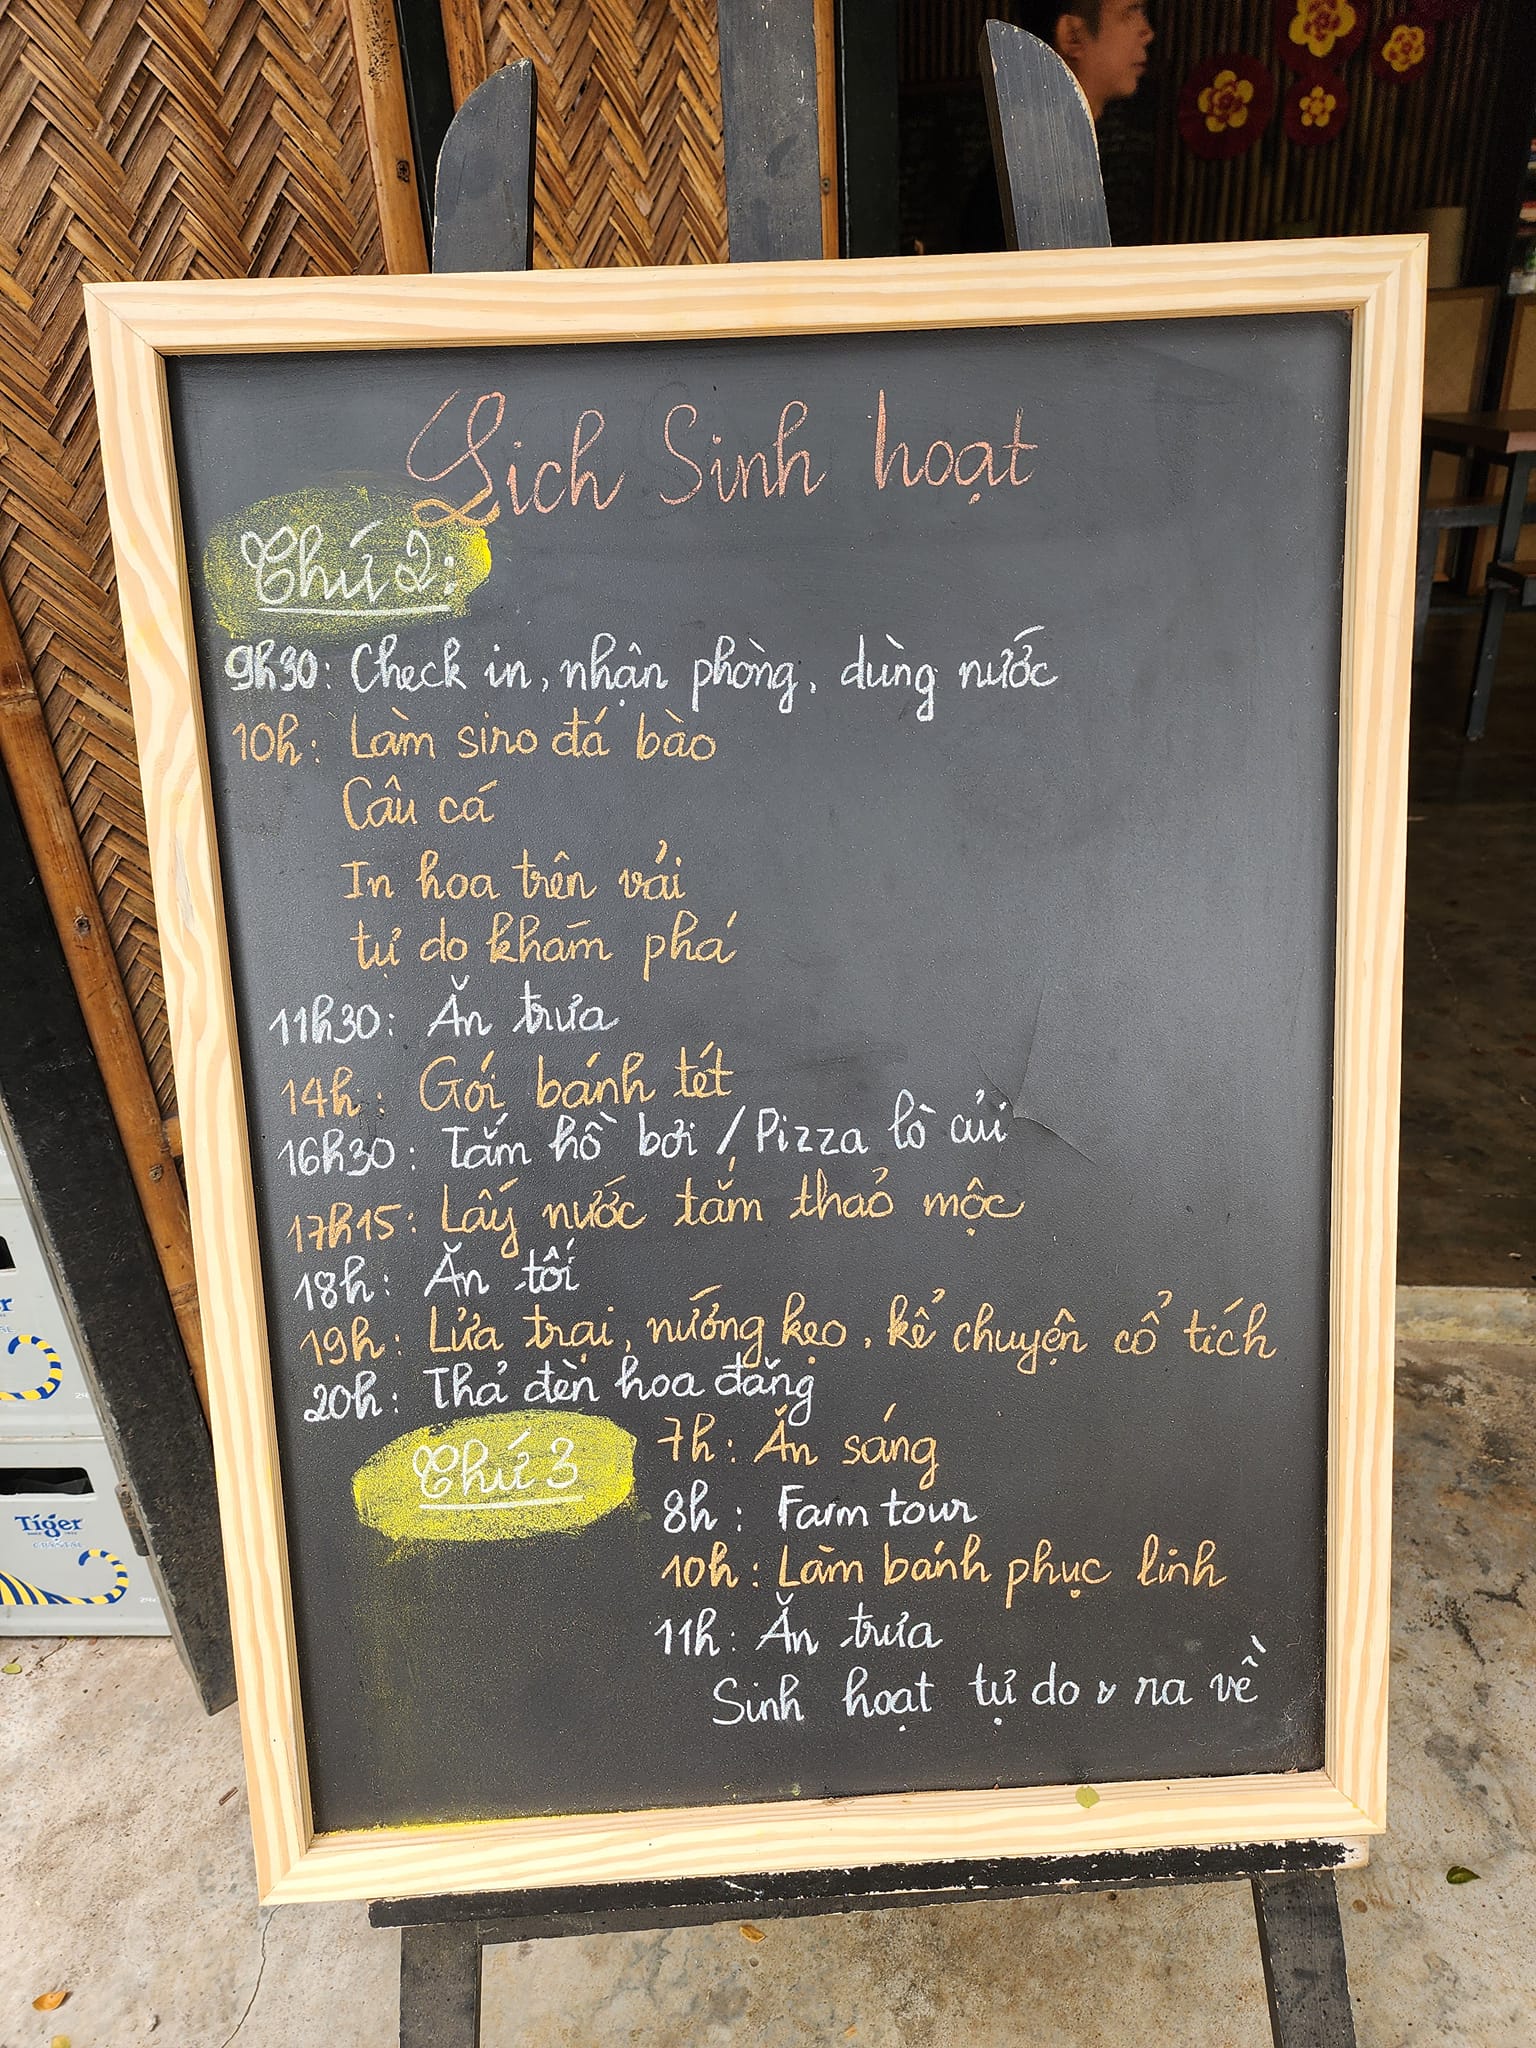 Lịch Sinh hoạt
Thứ 2:
9h30: Check in, nhận phòng, dùng nước
10h: Làm siro đá bào
Câu cá
In hoa trên vải
tự do khám phá
11h30: Ăn trưa
14h: Gói bánh tét
16h30: Tắm hồ bơi / Pizza lò củi
17h15: Lấy nước tắm thảo mộc
18h: Ăn tối
19h: Lửa trại, nướng kẹo, kể chuyện cổ tích
20h: Thả đèn hoa đăng
Thứ 3
7h: Ăn sáng
8h: Farm tour
10h: Làm bánh phục linh
11h: Ăn trưa
Sinh hoạt tự do & ra về
Tiger
CRYSTAL